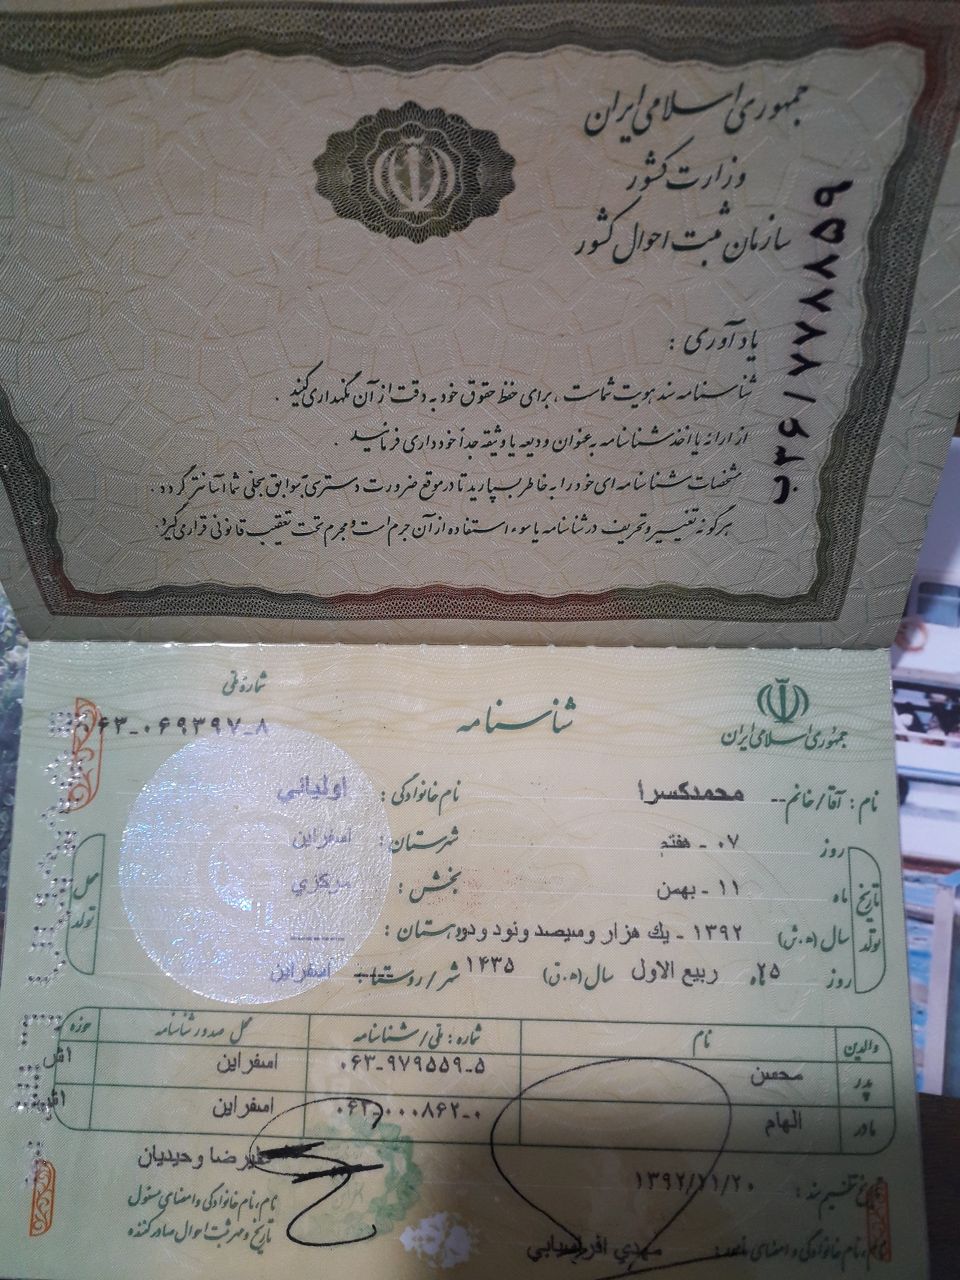 جمهوری اسلامی ایران
وزارت کشور
سازمان ثبت احوال کشور
ب۳۶/۷۷۸۸۵۹
یادآوری :
شناسنامه سند هویت شماست ، برای حفظ حقوق خود به دقت از آن نگهداری کنید .
از ارائه یا اخذ شناسنامه به عنوان ودیعه یا وثیقه جداً خودداری فرمائید .
مشخصات شناسنامه ای خود را به خاطر بسپارید تا در موقع ضرورت دسترسی به سوابق سجلی شما آسانتر گردد .
هرگونه تغییر و تحریف در شناسنامه یا سوء استفاده از آن جرم است و مجرم تحت تعقیب قانونی قرار می‌گیرد.
جمهوری اسلامی ایران
شناسنامه
شماره ملی
۰۶۳-۰۶۹۳۹۷-۸
نام : آقا/خانم-- محمدکسرا نام خانوادگی : اولیائی
تاریخ تولد
روز ۰۷ - هفتم شهرستان : اسفراین
محل تولد
ماه ۱۱ - بهمن بخش : مرکزي
سال (ه.ش) ۱۳۹۲ - یك هزار و سیصد و نود و دو دهستان : -----
روز ۲۵ ماه ربیع الاول سال (ه.ق) ۱۴۳۵ شهر/روستا : اسفراین
والدین نام شماره : ملی/شناسنامه محل صدور شناسنامه حوزه
پدر محسن ۰۶۳-۹۷۹۵۵۹-۵ اسفراین اش
مادر الهام ۰۶۳-۰۰۰۸۶۲-۰ اسفراین اش
تاریخ تنظیم سند : ۱۳۹۲/۱۱/۲۰
علیرضا وحیدیان
نام، نام خانوادگی و امضای مسئول
تاریخ و مهر ثبت احوال صادرکننده
نام، نام خانوادگی و امضای مأمور : مهدي افراسیابي